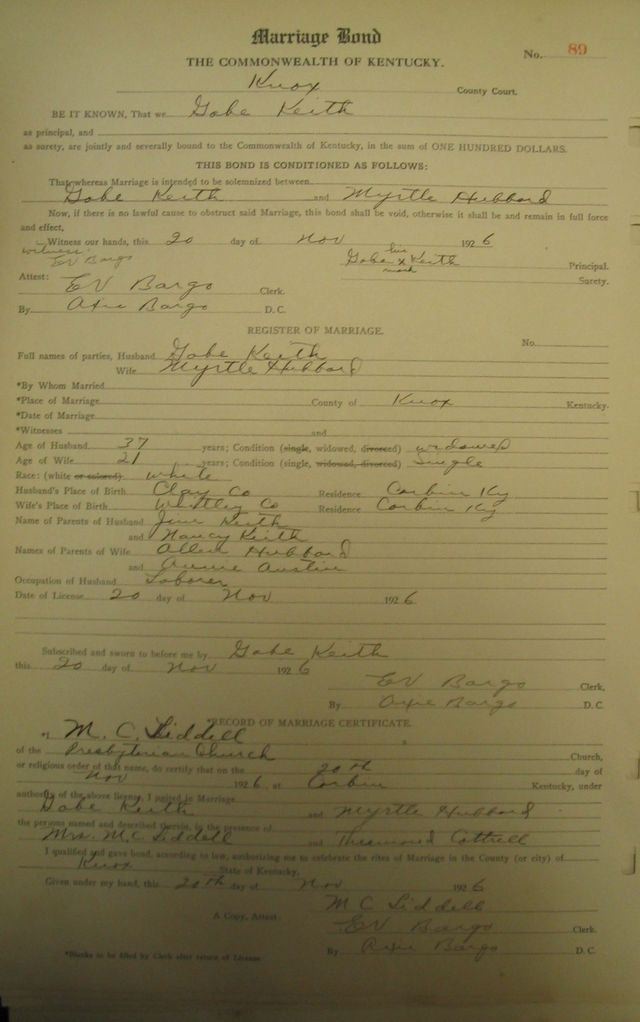 Marriage Bond
No. 89
THE COMMONWEALTH OF KENTUCKY.
Knox County Court.
BE IT KNOWN, That we Gobe Keith
as principal, and
as surety, are jointly and severally bound to the Commonwealth of Kentucky, in the sum of ONE HUNDRED DOLLARS.
THIS BOND IS CONDITIONED AS FOLLOWS:
That whereas Marriage is intended to be solemnized between
Gobe Keith and Myrtle Hubbard
Now, if there is no lawful cause to obstruct said Marriage, this bond shall be void, otherwise it shall be and remain in full force
and effect,
Witness our hands, this 20 day of Nov 1926
witness: EV Bargo
Gobe his x mark Keith Principal.
Surety.
Attest: EV Bargo Clerk.
By Bargo D. C.
REGISTER OF MARRIAGE.
No.
Full names of parties, Husband Gobe Keith
Wife Myrtle Hubbard
*By Whom Married
*Place of Marriage County of Knox Kentucky.
*Date of Marriage
*Witnesses and
Age of Husband 37 years; Condition (single, widowed, divorced) widowed
Age of Wife 21 years; Condition (single, widowed, divorced) Single
Race: (white or colored) white
Husband's Place of Birth Clay Co Residence Corbin Ky
Wife's Place of Birth Whitley Co Residence Corbin Ky
Name of Parents of Husband Jim Keith
and Nancy Keith
Names of Parents of Wife Allen Hubbard
and Annie Austin
Occupation of Husband Laborer
Date of License 20 day of Nov 1926
Subscribed and sworn to before me by Gobe Keith
this 20 day of Nov 1926
EV Bargo Clerk,
By Bargo D. C
RECORD OF MARRIAGE CERTIFICATE.
I, M. C. Liddell
of the Presbyterian Church Church,
or religious order of that name, do certify that on the 20th day of
Nov 1926, at Corbin Kentucky, under
authority of the above license, I united in Marriage
Gobe Keith and Myrtle Hubbard
the persons named and described therein, in the presence of
Mrs. M C Liddell and Cottrell
I qualified and gave bond, according to law, authorizing me to celebrate the rites of Marriage in the County (or city) of
Knox State of Kentucky.
Given under my hand, this 20th day of Nov 1926
M C Liddell
A Copy, Attest: EV Bargo Clerk.
By Bargo D. C.
*Blanks to be filled by Clerk after return of License